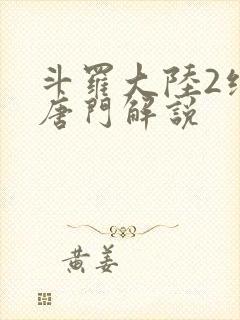 斗羅大陸2
唐門解說
黃姜